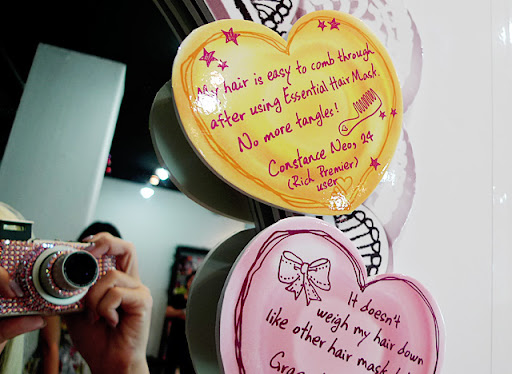 My hair is easy to comb through
after using Essential Hair Mask.
No more tangles!
Constance Neo, 24
(Rich Premier)
user
It doesn't
weigh my hair down
like other hair mask